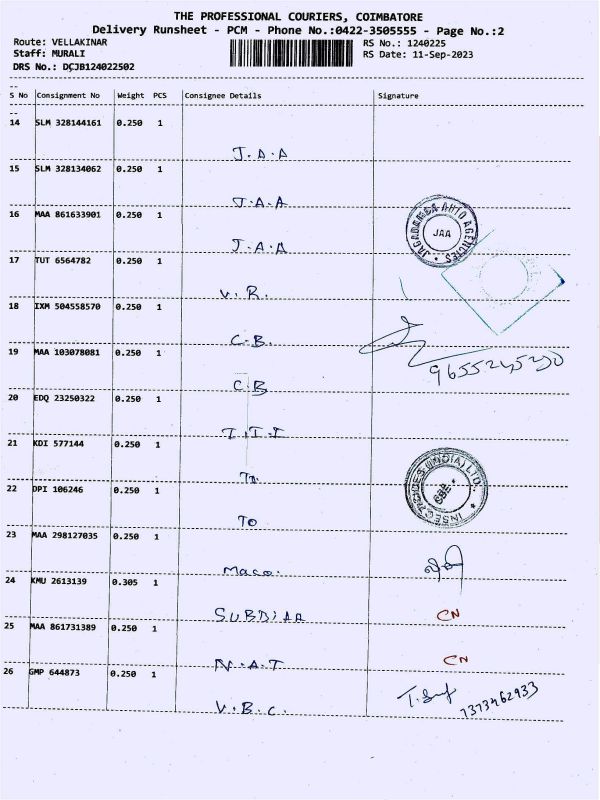 THE PROFESSIONAL COURIERS, COIMBATORE
Delivery Runsheet - PCM - Phone No.:0422-3505555 - Page No.:2
Route: VELLAKINAR RS No.: 1240225
Staff: MURALI RS Date: 11-Sep-2023
DRS No.: DCJB124022502
S No Consignment No Weight PCS Consignee Details Signature
14 SLM 328144161 0.250 1
J.A.A
15 SLM 328134062 0.250 1
J.A.A
16 MAA 861633901 0.250 1
J.A.A
JAGADAMBA AUTO AGENCIES
JAA
17 TUT 6564782 0.250 1
V.R.
18 IXM 504558570 0.250 1
C.B.
19 MAA 103078081 0.250 1
C.B
20 EDQ 23250322 0.250 1
I.I.I
21 KDI 577144 0.250 1
22 DPI 106246 0.250 1
TO
(INDIA) LTD.
CBE
23 MAA 298127035 0.250 1
Maco.
24 KMU 2613139 0.305 1
SUBDIAA
CN
25 MAA 861731389 0.250 1
N.A.T
CN
26 GMP 644873 0.250 1
V.B.C.
7373462933